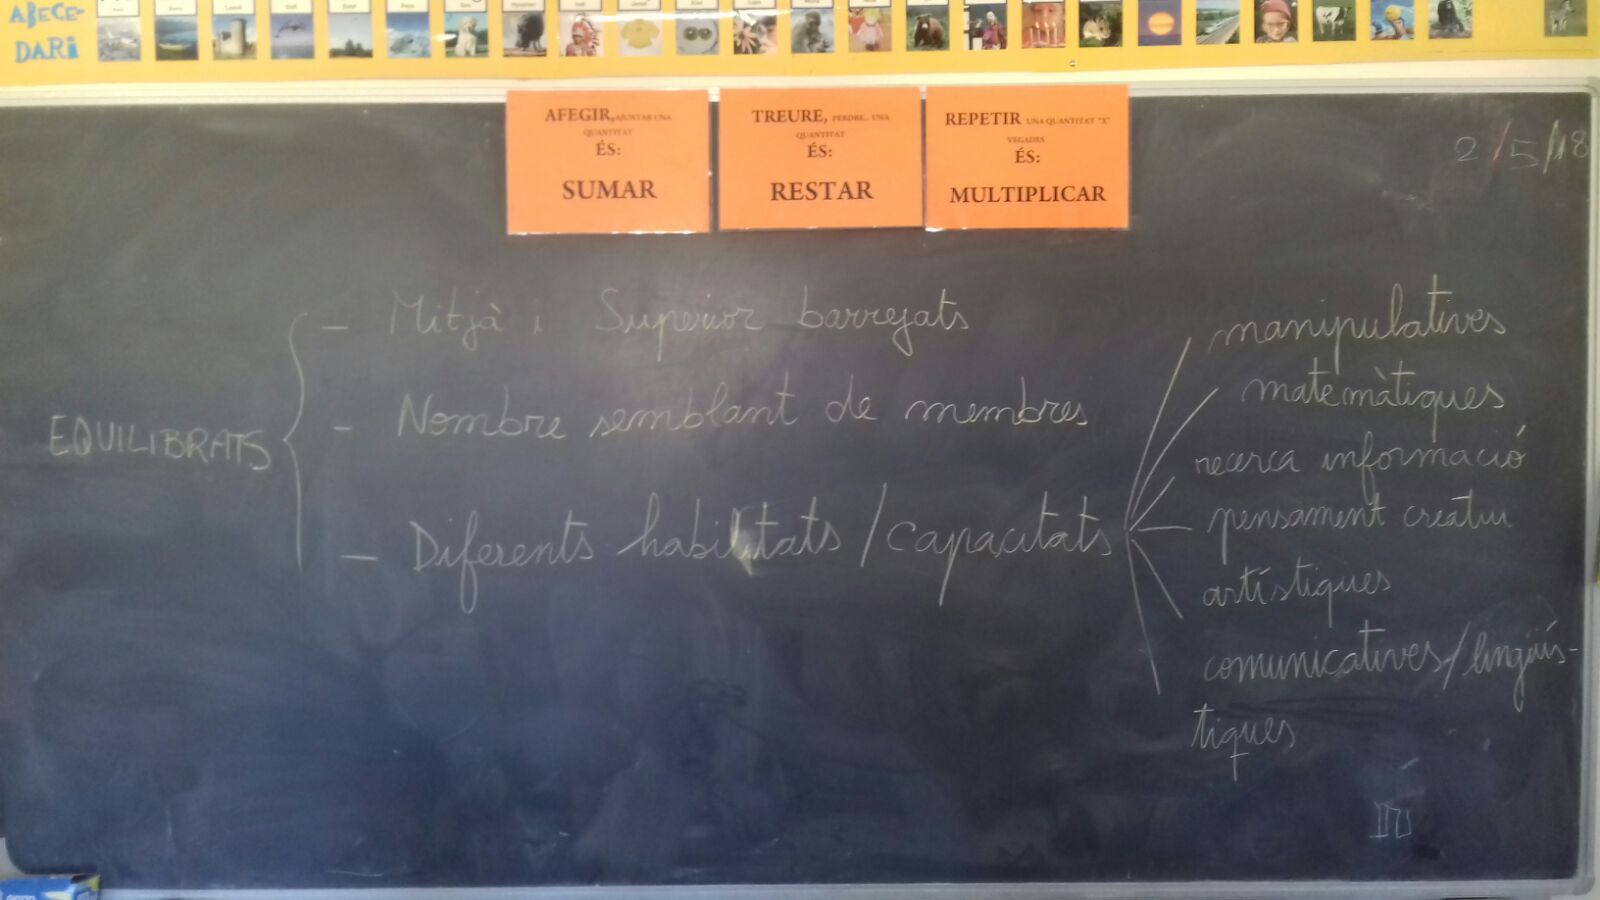 ABECE-
DARI
AFEGIR, AJUNTAR UNA
QUANTITAT
ÉS:
SUMAR
TREURE, PERDRE... UNA
QUANTITAT
ÉS:
RESTAR
REPETIR UNA QUANTITAT "X"
VEGADES
ÉS:
MULTIPLICAR
2/5/18
EQUILIBRATS
- Mitjà i Superior barrejats
- Nombre semblant de membres
- Diferents habilitats / capacitats
manipulatives
matemàtiques
recerca informació
pensament creatiu
artístiques
comunicatives/lingüís-
tiques